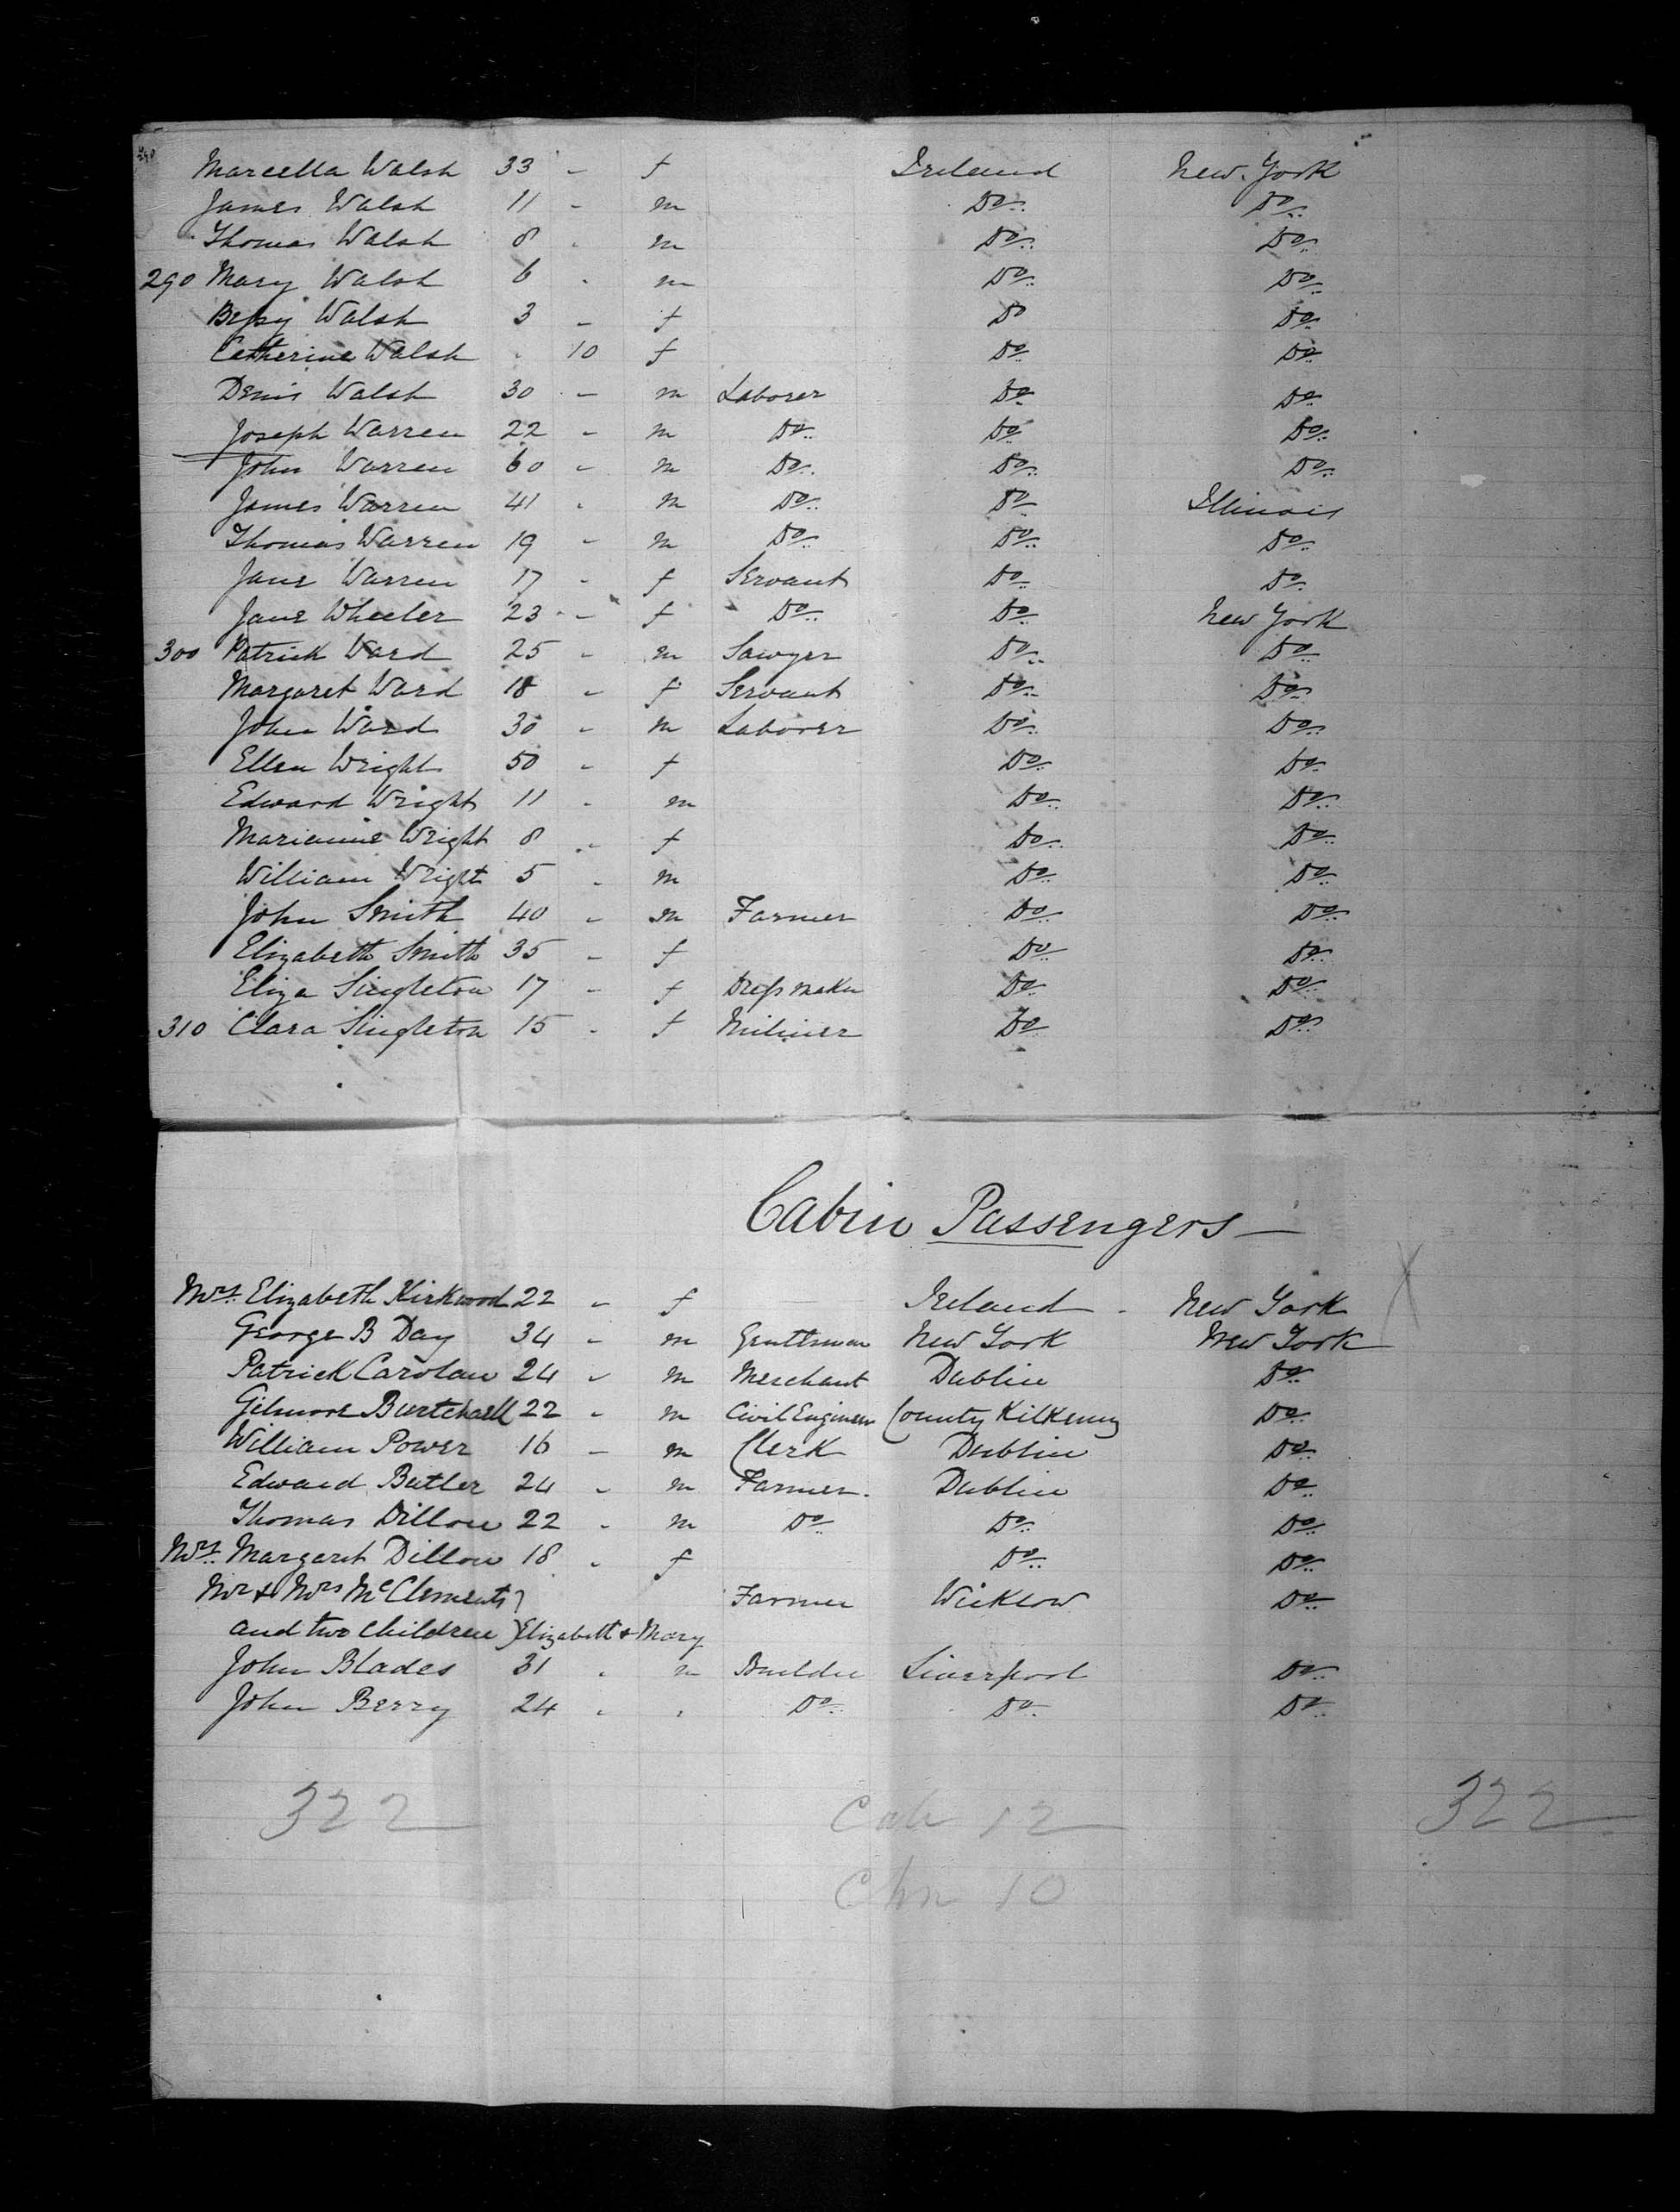 Marcella Walsh 33 - f Ireland New York
James Walsh 11 - m Do Do
Thomas Walsh 8 - m Do Do
290 Mary Walsh 6 - m Do Do
Bessy Walsh 3 - f Do Do
Catherine Walsh - 10 f Do Do
Denis Walsh 30 - m Laborer Do Do
Joseph Warren 22 - m Do Do Do
John Warren 60 - m Do Do Do
James Warren 41 - m Do Do Illinois
Thomas Warren 19 - m Do Do Do
Jane Warren 17 - f Servant Do Do
Jane Wheeler 23 - f Do Do New York
300 Patrick Ward 25 - m Sawyer Do Do
Margaret Ward 18 - f Servant Do Do
John Ward 30 - m Laborer Do Do
Ellen Wright 50 - f Do Do
Edward Wright 11 - m Do Do
Marianne Wright 8 - f Do Do
William Wright 5 - m Do Do
John Smith 40 - m Farmer Do Do
Elizabeth Smith 35 - f Do Do
Eliza Singleton 17 - f Dress maker Do Do
310 Clara Singleton 15 - f Miliner Do Do
Cabin Passengers —
Mrs. Elizabeth Kirkwood 22 - f Ireland - New York
George B Day 34 - m Gentleman New York New York
Patrick Carolan 24 - m Merchant Dublin Do
Gilmore Burtchaell 22 - m Civil Engineer County Kilkenny Do
William Power 16 - m Clerk Dublin Do
Edward Butler 24 - m Farmer. Dublin Do
Thomas Dillon 22 - m Do Do Do
Mrs. Margaret Dillon 18 - f Do Do
Mr & Mrs McClements } Farmer Wicklow Do
and two children } Elizabeth & Mary
John Blades 31 - m Builder Liverpool Do
John Berry 24 - - Do Do Do
322 Cab 12 322
Chn 10